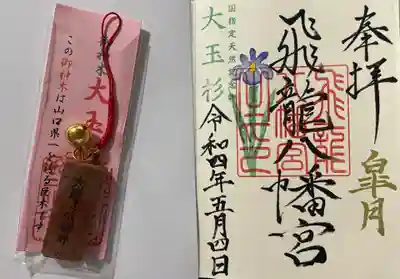 大玉
この御神木は山口県一を誇る巨木です
奉拝
皐月
飛龍八幡宮
国指定天然記
大玉杉
令和四年五月四日